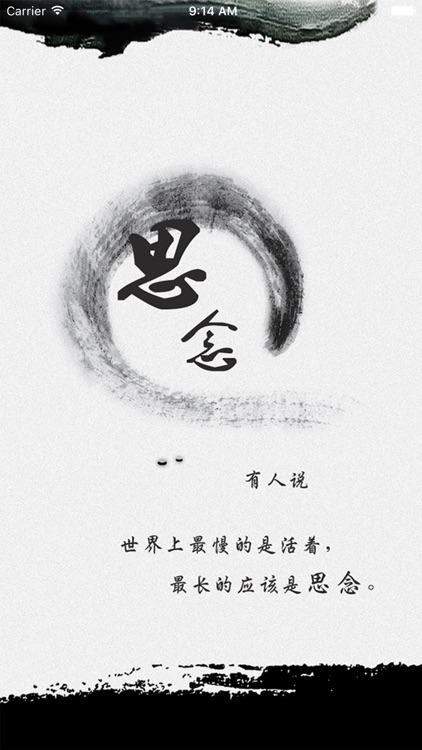 Carrier 9:14 AM
思
念
有人说
世界上最慢的是活着，
最长的应该是思念。